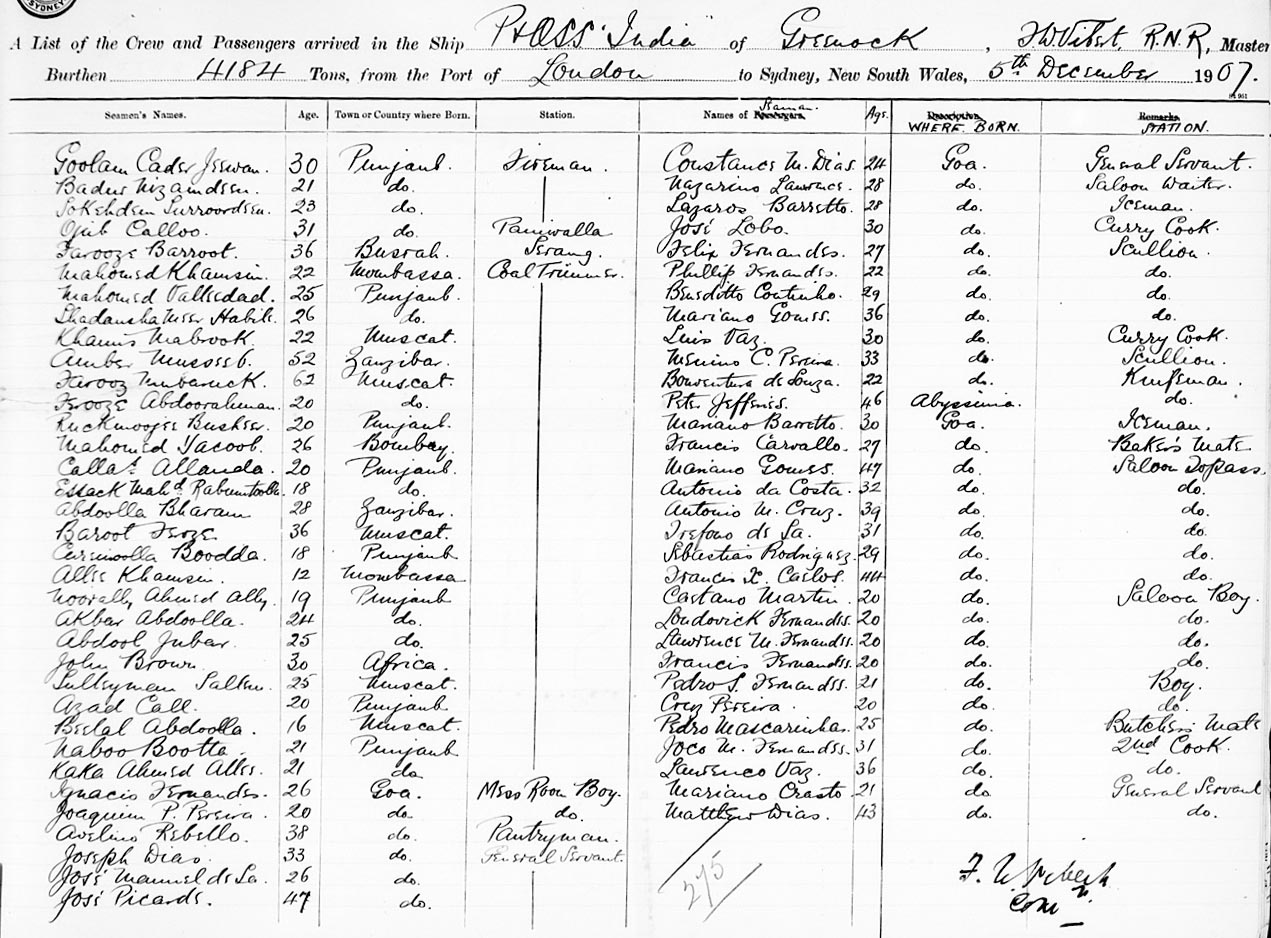 SYDNEY
A List of the Crew and Passengers arrived in the Ship P&OSS India of Greenock, F.W. Vibert, R.N.R, Master
Burthen 4184 Tons, from the Port of London to Sydney, New South Wales, 5th December 1907.
Seamen's Names. Age. Town or Country where Born. Station. Names of Passengers. Seaman. Age. Description WHERE BORN. Remarks STATION.
Goolam Cader Jeewan. 30 Punjaub. Fireman. Constance M. Dias 24 Goa. General Servant.
Badur Nizamdeen. 21 do. Nazarino Lawrence. 28 do. Saloon Waiter.
Sokehdeen Surroordeen. 23 do. Lazaros Barretto. 28 do. Iceman.
Ojib Calloo. 31 do. Paniwalla José Lobo. 30 do. Curry Cook.
Farooze Barroot. 36 Busrah. Serang. Felix Fernandes. 27 do. Scullion.
Mahomed Khamsin. 22 Mombassa. Coal Trimmer. Phillip Fernandes. 22 do. do.
Mahomed Valleedad. 25 Punjaub. Beneditto Coutinho. 29 do. do.
Habib. 26 do. Mariano Gomes. 36 do. do.
Khamis Mabrook. 22 Muscat. Luis Vaz. 30 do. Curry Cook.
Amber 52 Zanzibar. Menino C. Pereira. 33 do. Scullion.
Farooz Mubaruck. 62 Muscat. Bonventura de Souza. 22 do. Knifeman.
Ferooze Abdoorahman. 20 do. Peter Jefferies. 46 Abyssinia. do.
Busheer. 20 Punjaub. Mariano Barretto. 30 Goa. Iceman.
Mahomed Yacoob. 26 Bombay. Francis Carvallo. 27 do. Baker's Mate
Allanda. 20 Punjaub. Mariano Gomes. 47 do. Saloon Topass.
Essack Mahd. Rahimtoolla. 18 do. Antonio da Costa. 32 do. do.
Abdoolla Bharam 28 Zanzibar. Antonio M. Cruz. 39 do. do.
Baroot Feroze 36 Muscat. Trefono de Sa. 31 do. do.
Curimoolla Boodda. 18 Punjaub Sebastiao Rodriguez. 29 do. do.
Allee Khamsin. 12 Mombassa Francis X. Carlos. 44 do. do.
Noorally Ahmed Ally. 19 Punjaub Caetano Martin. 20 do. Saloon Boy.
Akbar Abdoolla. 24 do. Loudovick Fernandes. 20 do. do.
Abdool Jubar. 25 do. Lawrence M. Fernandes. 20 do. do.
John Brown. 30 Africa. Francis Fernandes. 20 do. do.
Sulleyman Salem. 25 Muscat. Pedro S. Fernandes. 21 do. Boy.
Azad Call. 20 Punjaub. Cruz Pereira. 20 do. do.
Beelal Abdoolla. 16 Muscat. Pedro Mascarinhas. 25 do. Butcher's Mate
Naboo Bootta. 21 Punjaub Joco M. Fernandes. 31 do. 2nd Cook.
Kaka Ahmed Allee. 21 do Laurenco Vaz. 36 do. do.
Ignacio Fernandes. 26 Goa. Mess Room Boy. Mariano Crasto 21 do General Servant
Joaquim P. Pereira. 20 do. do. Matthew Dias. 43 do. do.
Avelino Rebello. 38 do. Pantryman.
Joseph Dias. 33 do. General Servant.
José Manuel de Sa. 26 do.
José Picardo. 47 do.
275
F. W. Vibert
Comr